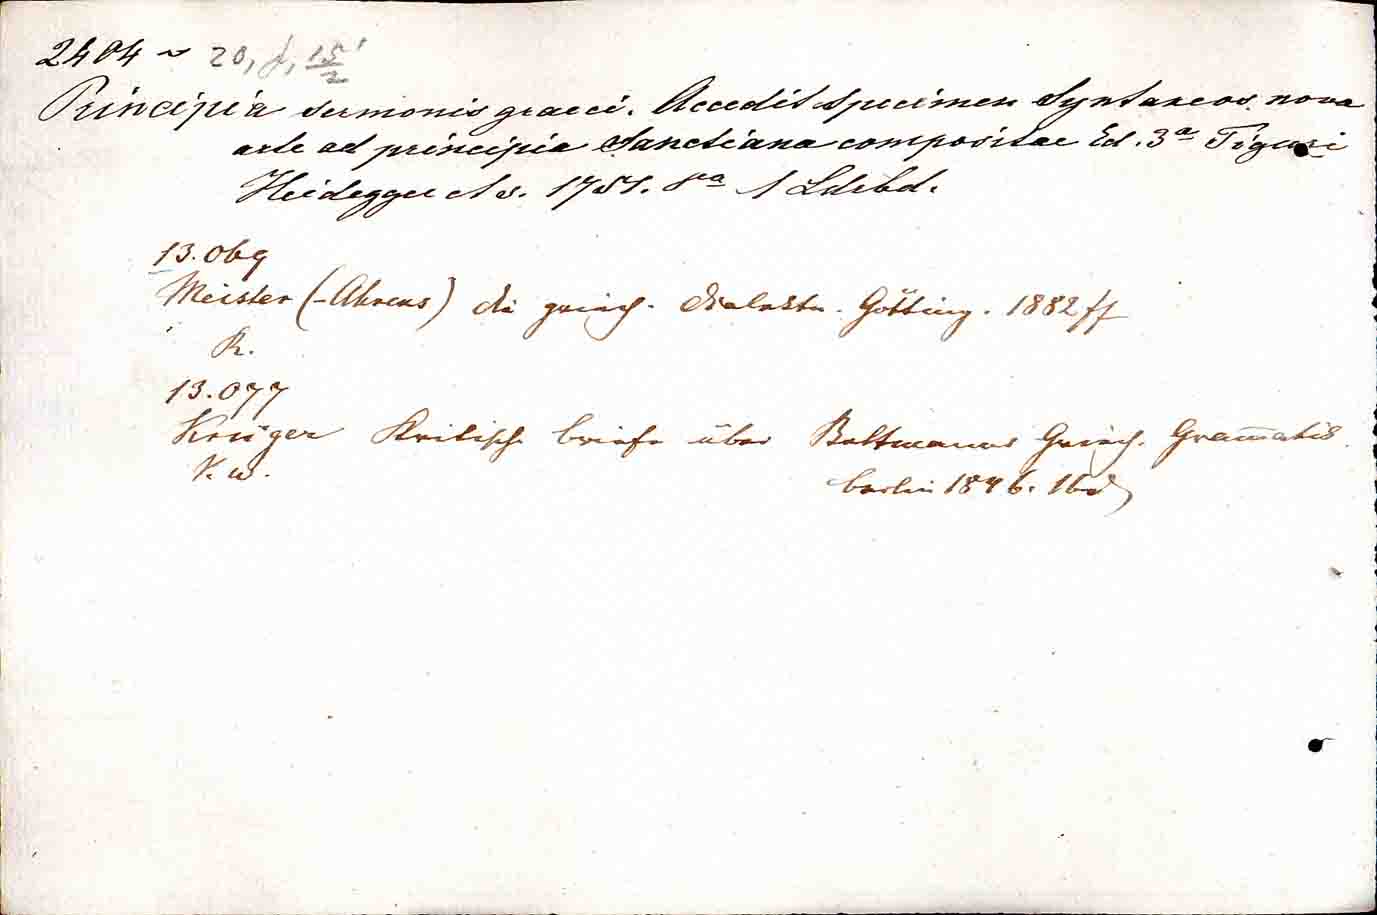 2404 ~ 20, f, 15/2
Principia sermonis graeci. Accedit specimen Syntaxeos nova
arte ad principia Sanctiana compositae Ed. 3ª Tiguri
Heidegger et s. 1751. 8ª 1 Ldrbd.
13.069
Meister (-Ahrens) die griech. Dialekte. Götting. 1882 ff
R.
13.077
Krüger Kritische briefe über Buttmanns Griech. Grammatik.
K. w.
berlin 1846. 1bd